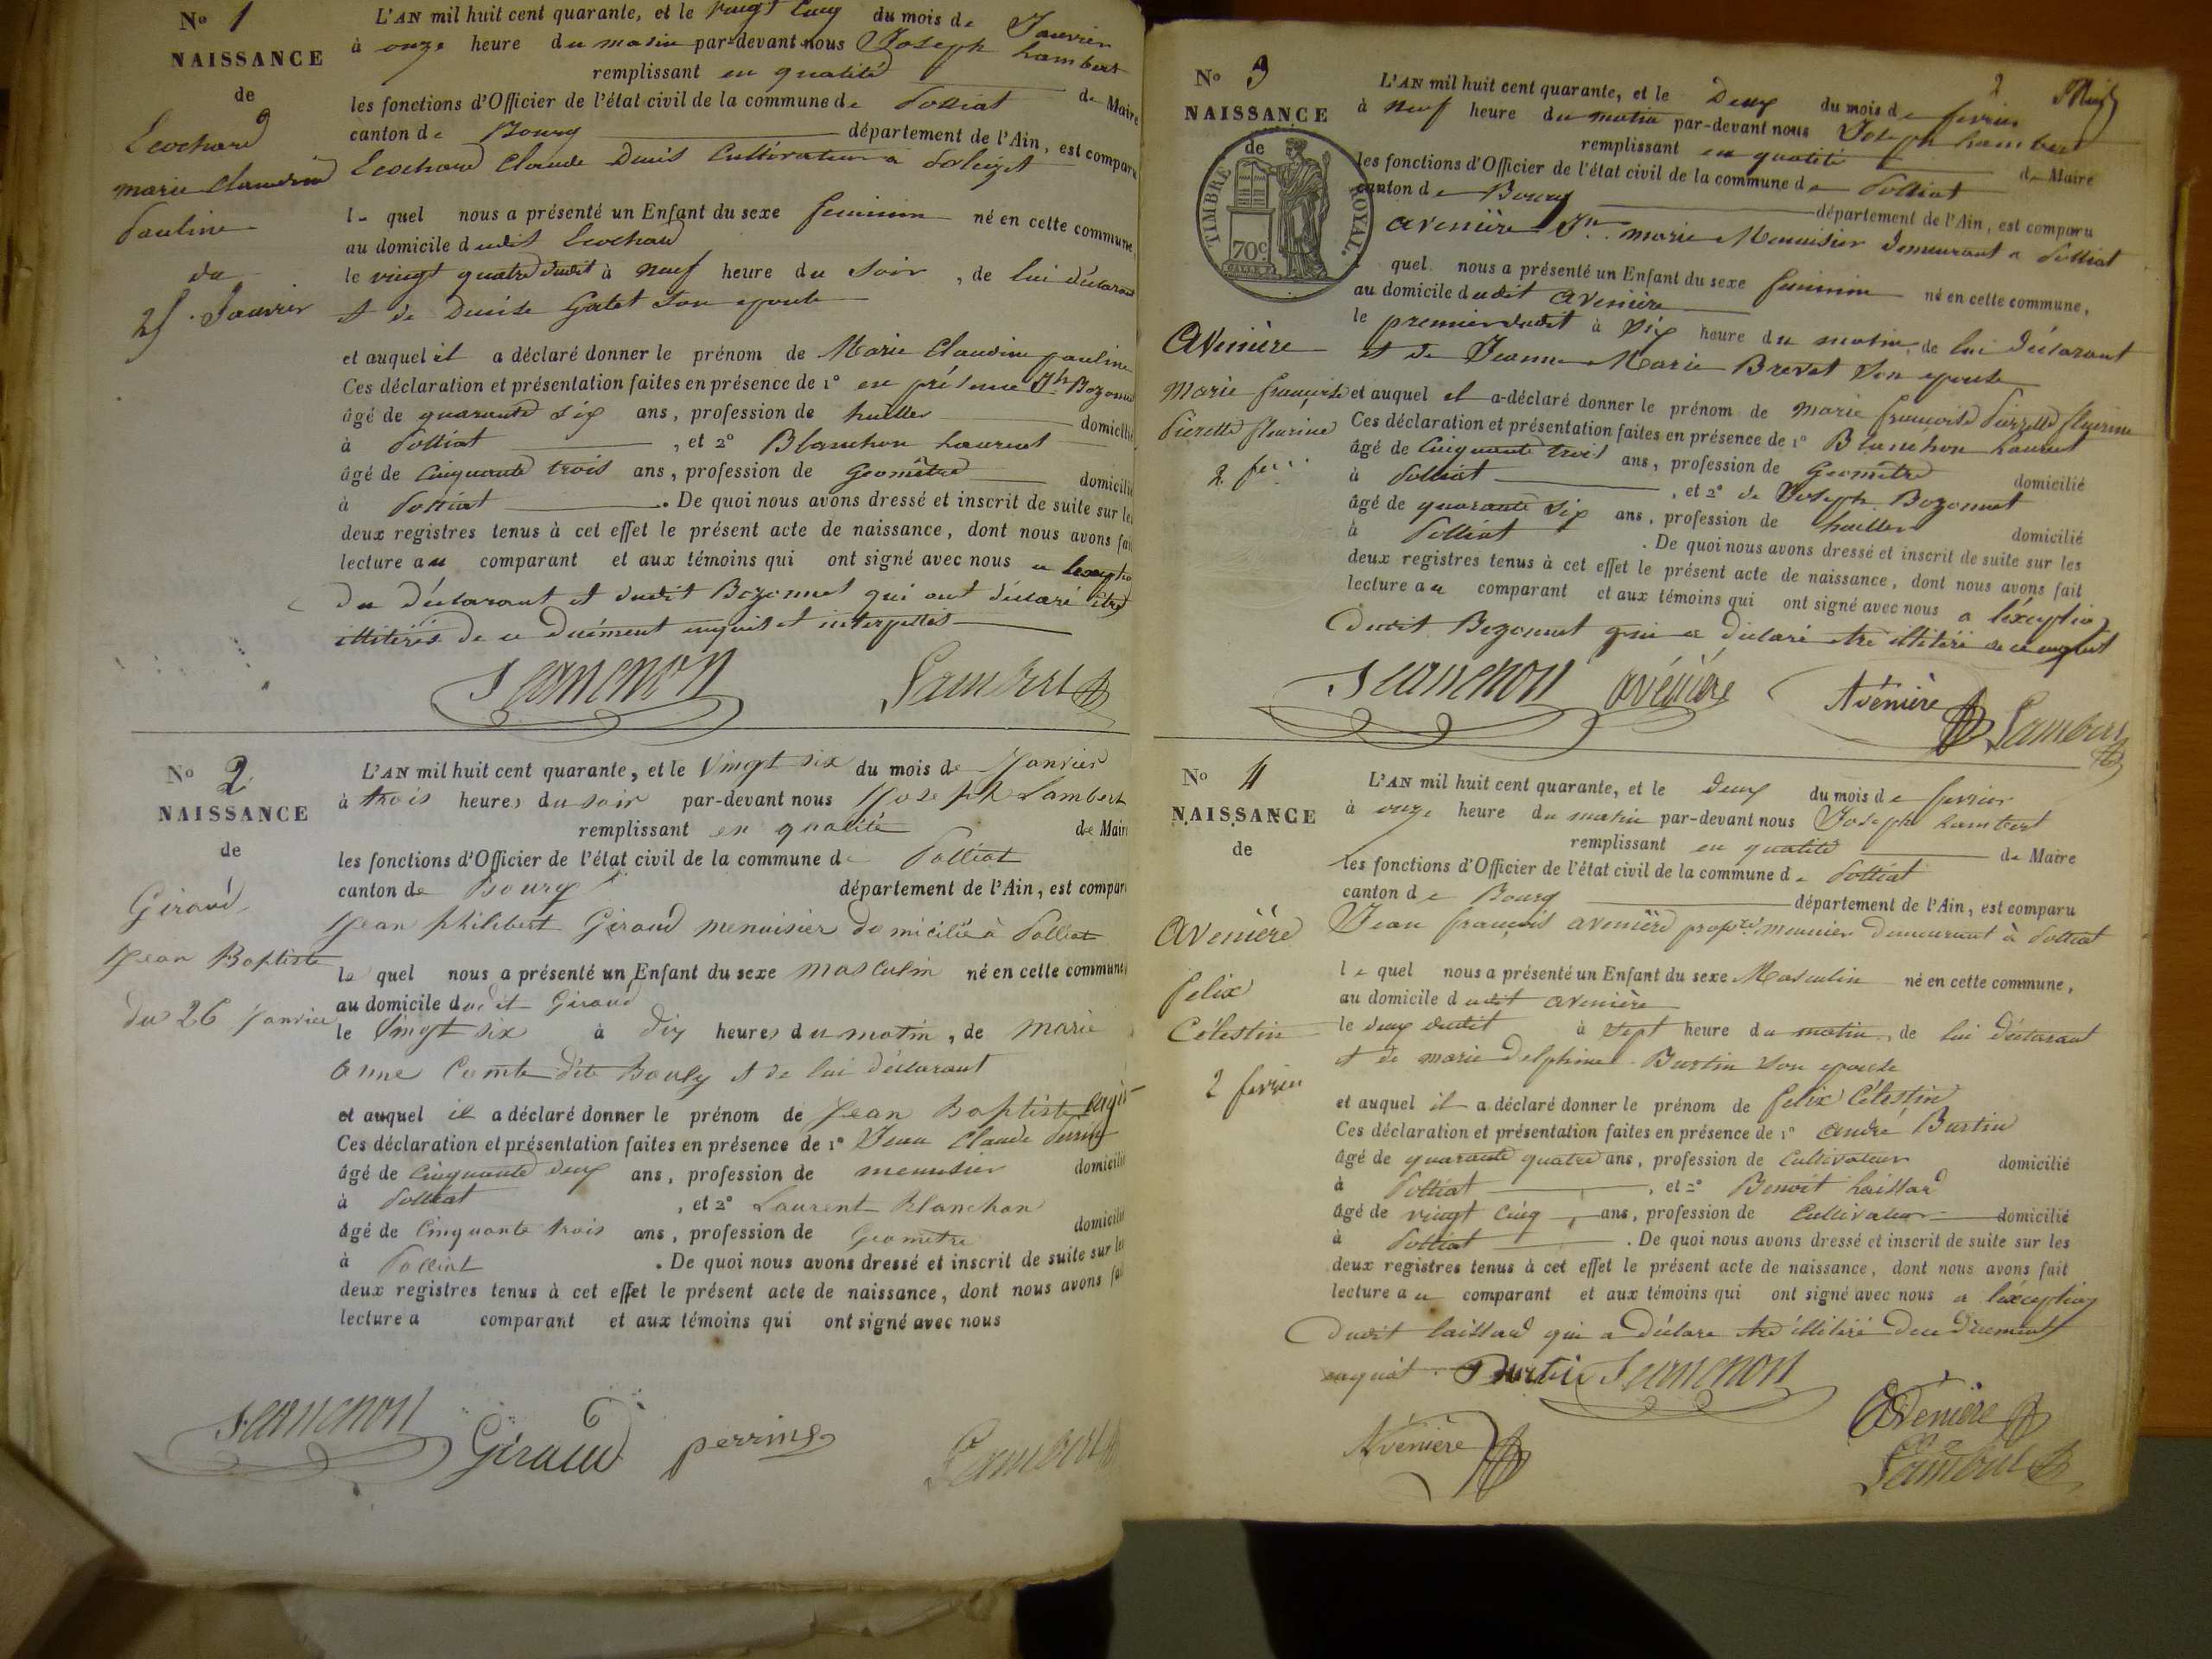 N.º 1
NAISSANCE
de
Ecochard
marie Claudine
Pauline
du
25 Janvier
L'AN mil huit cent quarante, et le vingt Cinq du mois de Janvier
à onze heure du matin par-devant nous Joseph Lambert
remplissant en qualité de Maire
les fonctions d'Officier de l'état civil de la commune de Polliat
canton de Bourg département de l'Ain, est comparu
Ecochard Claude Denis Cultivateur a
le quel nous a présenté un Enfant du sexe feminin né en cette commune,
au domicile dudit Ecochard
le vingt quatre dudit à neuf heure du Soir, de lui déclarant
et de Denise Gatet son epouse
et auquel il a déclaré donner le prénom de Marie Claudine pauline
Ces déclaration et présentation faites en présence de 1º en présence Jh Bozonnet
âgé de quarante six ans, profession de huillier domicilié
à Polliat, et 2º Blanchon Laurent
âgé de Cinquante trois ans, profession de Geomêtre domicilié
à Polliat. De quoi nous avons dressé et inscrit de suite sur les
deux registres tenus à cet effet le présent acte de naissance, dont nous avons fait
lecture au comparant et aux témoins qui ont signé avec nous a lexception
du déclarant et dudit Bozonnet qui ont déclaré être
illitérés de ce Duément enquis et interpellés
Lambert
N.º 2
NAISSANCE
de
Giraud
Jean Baptiste
du 26 janvier
L'AN mil huit cent quarante, et le vingt six du mois de Janvier
à trois heures du soir par-devant nous Joseph Lambert
remplissant en qualité de Maire
les fonctions d'Officier de l'état civil de la commune de Polliat
canton de Bourg département de l'Ain, est comparu
Jean philibert Giraud menuisier domicilié à Polliat
le quel nous a présenté un Enfant du sexe masculin né en cette commune,
au domicile dudit Giraud
le vingt six à dix heures du matin, de marie
anne Comte dite Bouly et de lui déclarant
et auquel il a déclaré donner le prénom de Jean Baptiste
Ces déclaration et présentation faites en présence de 1º Jean Claude Perrin
âgé de cinquante deux ans, profession de menuisier domicilié
à Polliat, et 2º Laurent Blanchon
âgé de Cinquante trois ans, profession de Geometre domicilié
à Polliat. De quoi nous avons dressé et inscrit de suite sur les
deux registres tenus à cet effet le présent acte de naissance, dont nous avons fait
lecture a comparant et aux témoins qui ont signé avec nous
Giraud perrin Lambert
2
N.º 3
NAISSANCE
de
TIMBRE ROYAL.
70c.
Avenière
Marie françoise
Pierette fleurine
2 fer
L'AN mil huit cent quarante, et le Deux du mois de fevrier
à neuf heure du matin par-devant nous Joseph Lambert
remplissant en qualité de Maire
les fonctions d'Officier de l'état civil de la commune de Polliat
canton de Bourg département de l'Ain, est comparu
avenière Jn marie Menuisier demeurant a Polliat
quel nous a présenté un Enfant du sexe feminin né en cette commune,
au domicile dudit avenière
le premier dudit à six heure du matin, de lui déclarant
et de Jeanne Marie Brevet son epouse
et auquel il a déclaré donner le prénom de marie françoise Pierrette fleurine
Ces déclaration et présentation faites en présence de 1º Blanchon Laurent
âgé de Cinquante trois ans, profession de Geomêtre domicilié
à Polliat, et 2º de Joseph Bozonnet
âgé de quarante six ans, profession de huillier domicilié
à Polliat. De quoi nous avons dressé et inscrit de suite sur les
deux registres tenus à cet effet le présent acte de naissance, dont nous avons fait
lecture au comparant et aux témoins qui ont signé avec nous a léxception
Dudit Bozonnet qui a déclaré etre illitéré de ce enquit
avénière Avénière Lambert
N.º 4
NAISSANCE
de
Avenière
felix
Célestin
2 fevrier
L'AN mil huit cent quarante, et le deux du mois de fevrier
à onze heure du matin par-devant nous Joseph Lambert
remplissant en qualité de Maire
les fonctions d'Officier de l'état civil de la commune de Polliat
canton de Bourg département de l'Ain, est comparu
Jean françois avenière propre meunier demeurant à Polliat
le quel nous a présenté un Enfant du sexe Masculin né en cette commune,
au domicile dudit avenière
le deux dudit à sept heure du matin, de lui déclarant
et de marie Delphine Burtin son epouse
et auquel il a déclaré donner le prénom de felix Célestin
Ces déclaration et présentation faites en présence de 1º andré Burtin
âgé de quarante quatre ans, profession de Cultivateur domicilié
à Polliat, et 2º Benoit Laissard
âgé de vingt cinq ans, profession de Cultivateur domicilié
à Polliat. De quoi nous avons dressé et inscrit de suite sur les
deux registres tenus à cet effet le présent acte de naissance, dont nous avons fait
lecture au comparant et aux témoins qui ont signé avec nous a léxception
Dudit laissard qui a déclaré être illitéré de ce dûement
enquit. Burtin
Avenière
Avénière Lambert